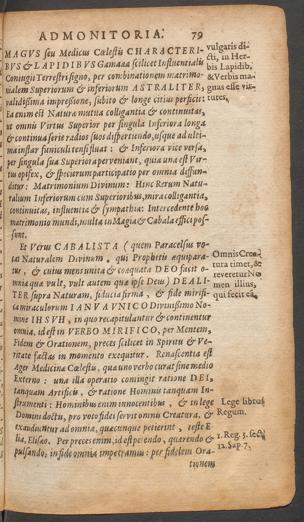 ADMONITORIA. 79
MAGVS seu Medicus Cœlestis CHARACTERI-
BVS & LAPIDIBVS Gamaaa scilicet Influentialis
Coniugii Terrestri signo, per combinationem matrimo-
nialem Superiorum & inferiorum ASTRALITER,
validissima impressione, subito & longe citius perficit:
Ea enim est Naturæ mutua colligantia & continuitas,
ut omnis Virtus Superior per singula Inferiora longa
& continua serie radios suos dispertiendo, usque ad ulti-
ma instar funiculi tensi fluat: & Inferiora vice versa,
per singula sua Superiora perveniant, quia una est Vir-
tus opifex, & specierum participatio per omnia diffun-
ditur: Matrimonium Divinum: Hinc Rerum Natu-
ralium Inferiorum cum Superioribus, mira colligantia,
continuitas, influentia & sympathia: Intercedente hoc
matrimonio mundi, multa in Magia & Cabala effici pos-
sunt.
Et Verus CABALISTA (quem Paracelsus vo-
cat Naturalem Divinum, qui Prophetis æquipara-
tur, & cuius mens unita & coæquata DEO facit o-
mnia quæ vult, vult autem quæ ipse Deus) DEALI-
TER supra Naturam, fiducia firma, & fide mirifi-
ca miraculorum IANVA VNICO Divinissimo No-
mine IHSVH, in quo recapitulantur & continentur
omnia, id est in VERBO MIRIFICO, per Mentem,
Fidem & Orationem, preces scilicet in Spiritu & Ve-
ritate factas in momento exequitur. Renascentia est
Ager Medicina Cœlestis, qua uno verbo curat sine medio
Externo: una illa operatio contingit ratione DEI,
tanquam Artificis, & ratione Hominis tanquam In-
strumenti: Hominibus enim innocentibus, & in lege
Domini doctis, pro voto fideli servit omnis Creatura, &
exaudiuntur ad omnia, quæcunque petierint, teste E-
lia, Elisæo. Per preces enim, id est petendo, quærendo &
pulsando, in fide omnia impetramus: per fidelem Ora-
tionem
vulgaris di-
cti, in Her-
bis Lapidib.
& Verbis ma-
gnas esse vir-
tutes,
Omnis Crea-
tura timet, &
reveretur No
men illius,
qui fecit eā.
Lege libros
Regum.
1. Reg. 3.
12. Sap. 7.